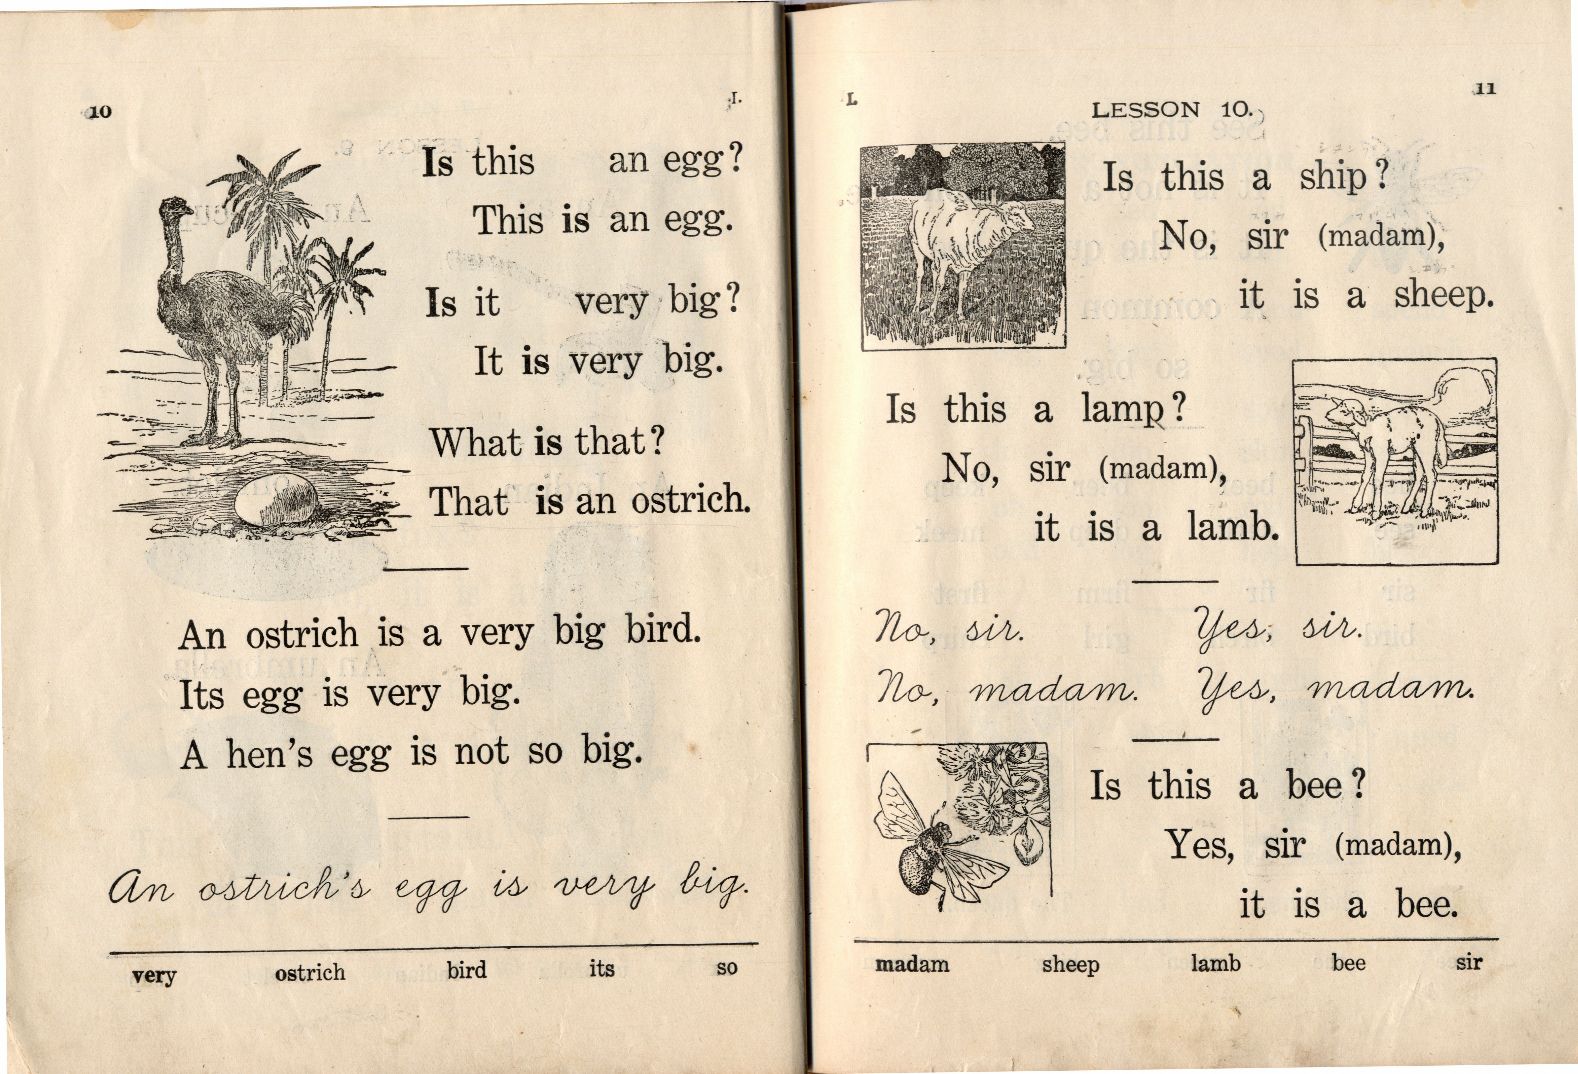 10
I.
Is this an egg?
This is an egg.
Is it very big?
It is very big.
What is that?
That is an ostrich.
An ostrich is a very big bird.
Its egg is very big.
A hen's egg is not so big.
An ostrich's egg is very big.
very ostrich bird its so
I.
11
LESSON 10.
Is this a ship?
No, sir (madam),
it is a sheep.
Is this a lamp?
No, sir (madam),
it is a lamb.
No, sir. Yes, sir.
No, madam. Yes, madam.
Is this a bee?
Yes, sir (madam),
it is a bee.
madam sheep lamb bee sir